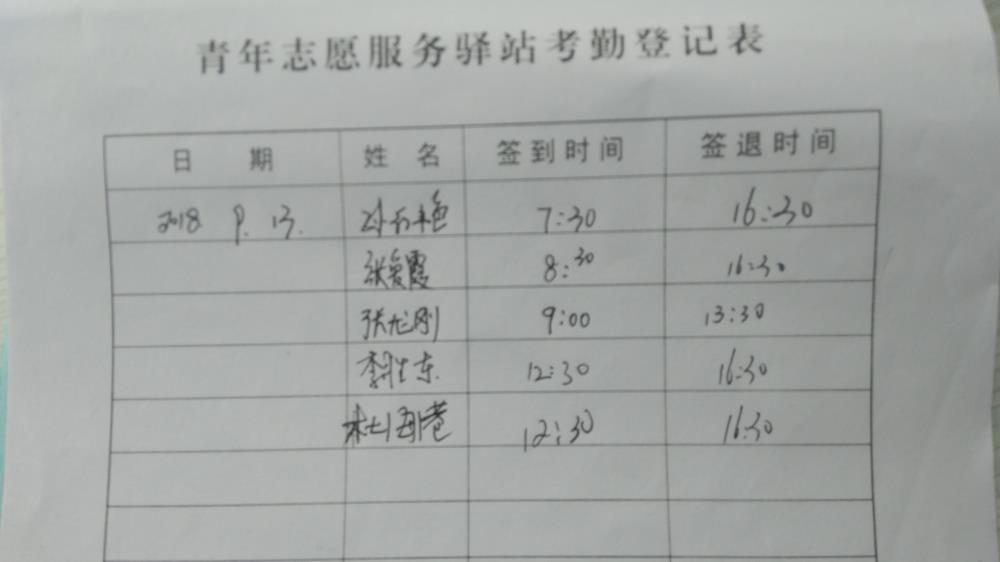 青年志愿服务驿站考勤登记表
日 期 姓 名 签到时间 签退时间
2018 9. 13. 7:30 16:30
张爱霞 8:30 16:30
张龙刚 9:00 13:30
李胜东 12:30 16:30
杜海港 12:30 16:30